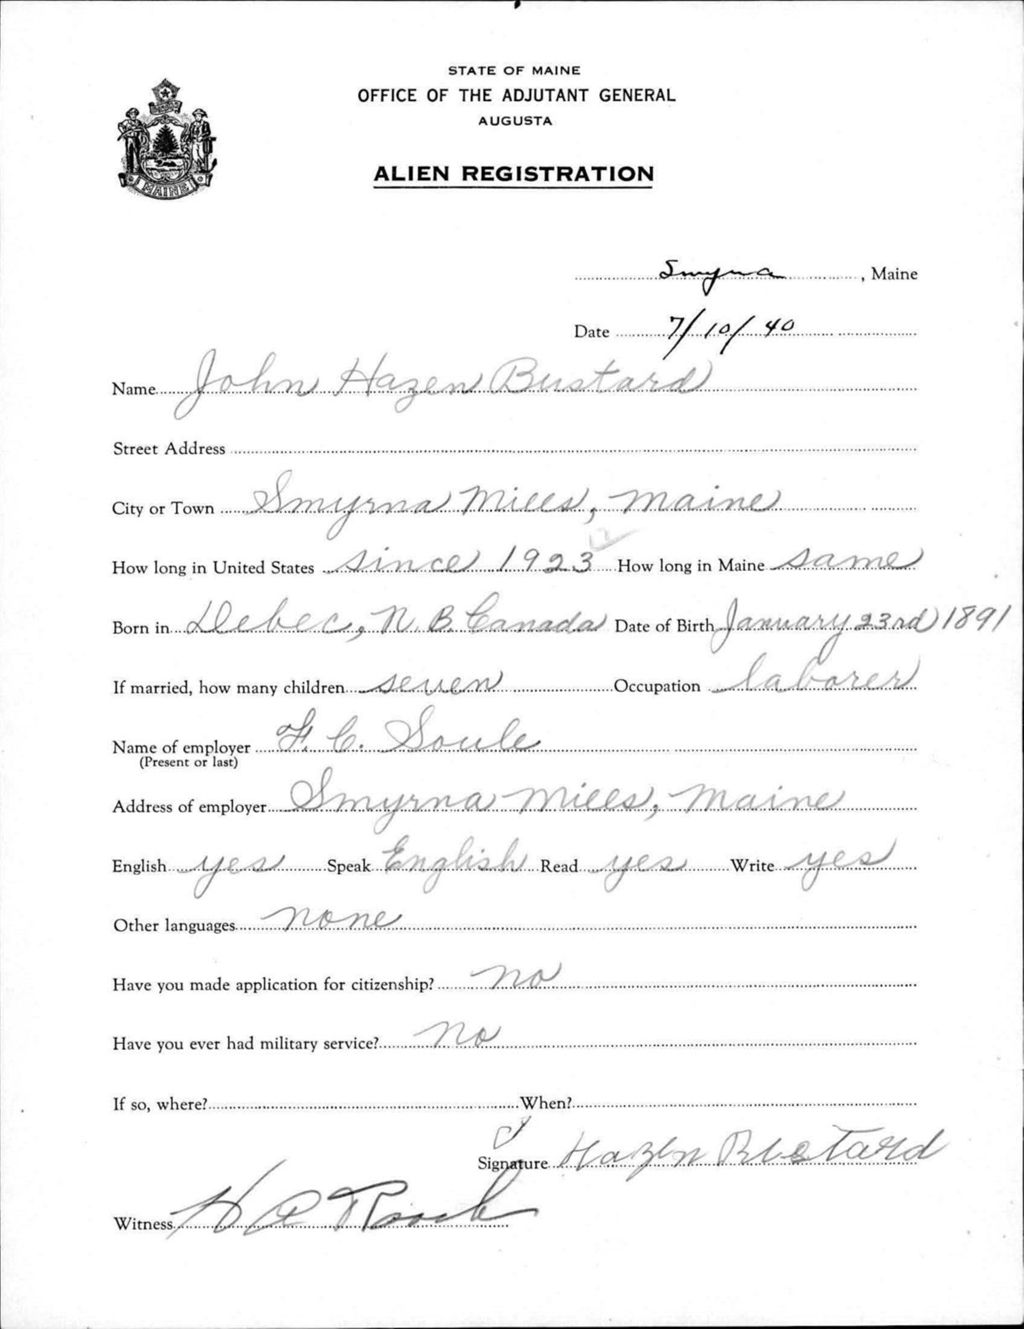 STATE OF MAINE
OFFICE OF THE ADJUTANT GENERAL
AUGUSTA
ALIEN REGISTRATION
MAINE
Smyrna, Maine
Date 7/10/40
Name John Hazen Bustard
Street Address
City or Town Smyrna Mills, Maine
How long in United States since 1923 How long in Maine same
Born in Debec, N.B. Canada Date of Birth January 23rd 1891
If married, how many children seven Occupation laborer
Name of employer F. C. Soule
(Present or last)
Address of employer Smyrna Mills, Maine
English yes Speak English Read yes Write yes
Other languages none
Have you made application for citizenship? no
Have you ever had military service? no
If so, where? When?
Signature J Hazen Bustard
Witness H